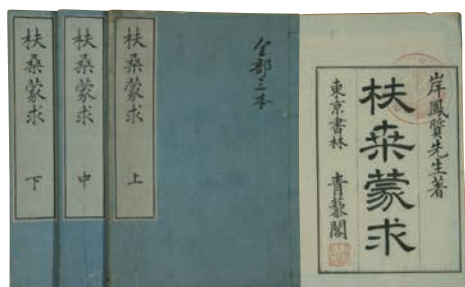 扶桑蒙求 上
扶桑蒙求 中
扶桑蒙求 下
全部三本
岸鳳質先生著
扶桒蒙求
東京書林 青藜閣